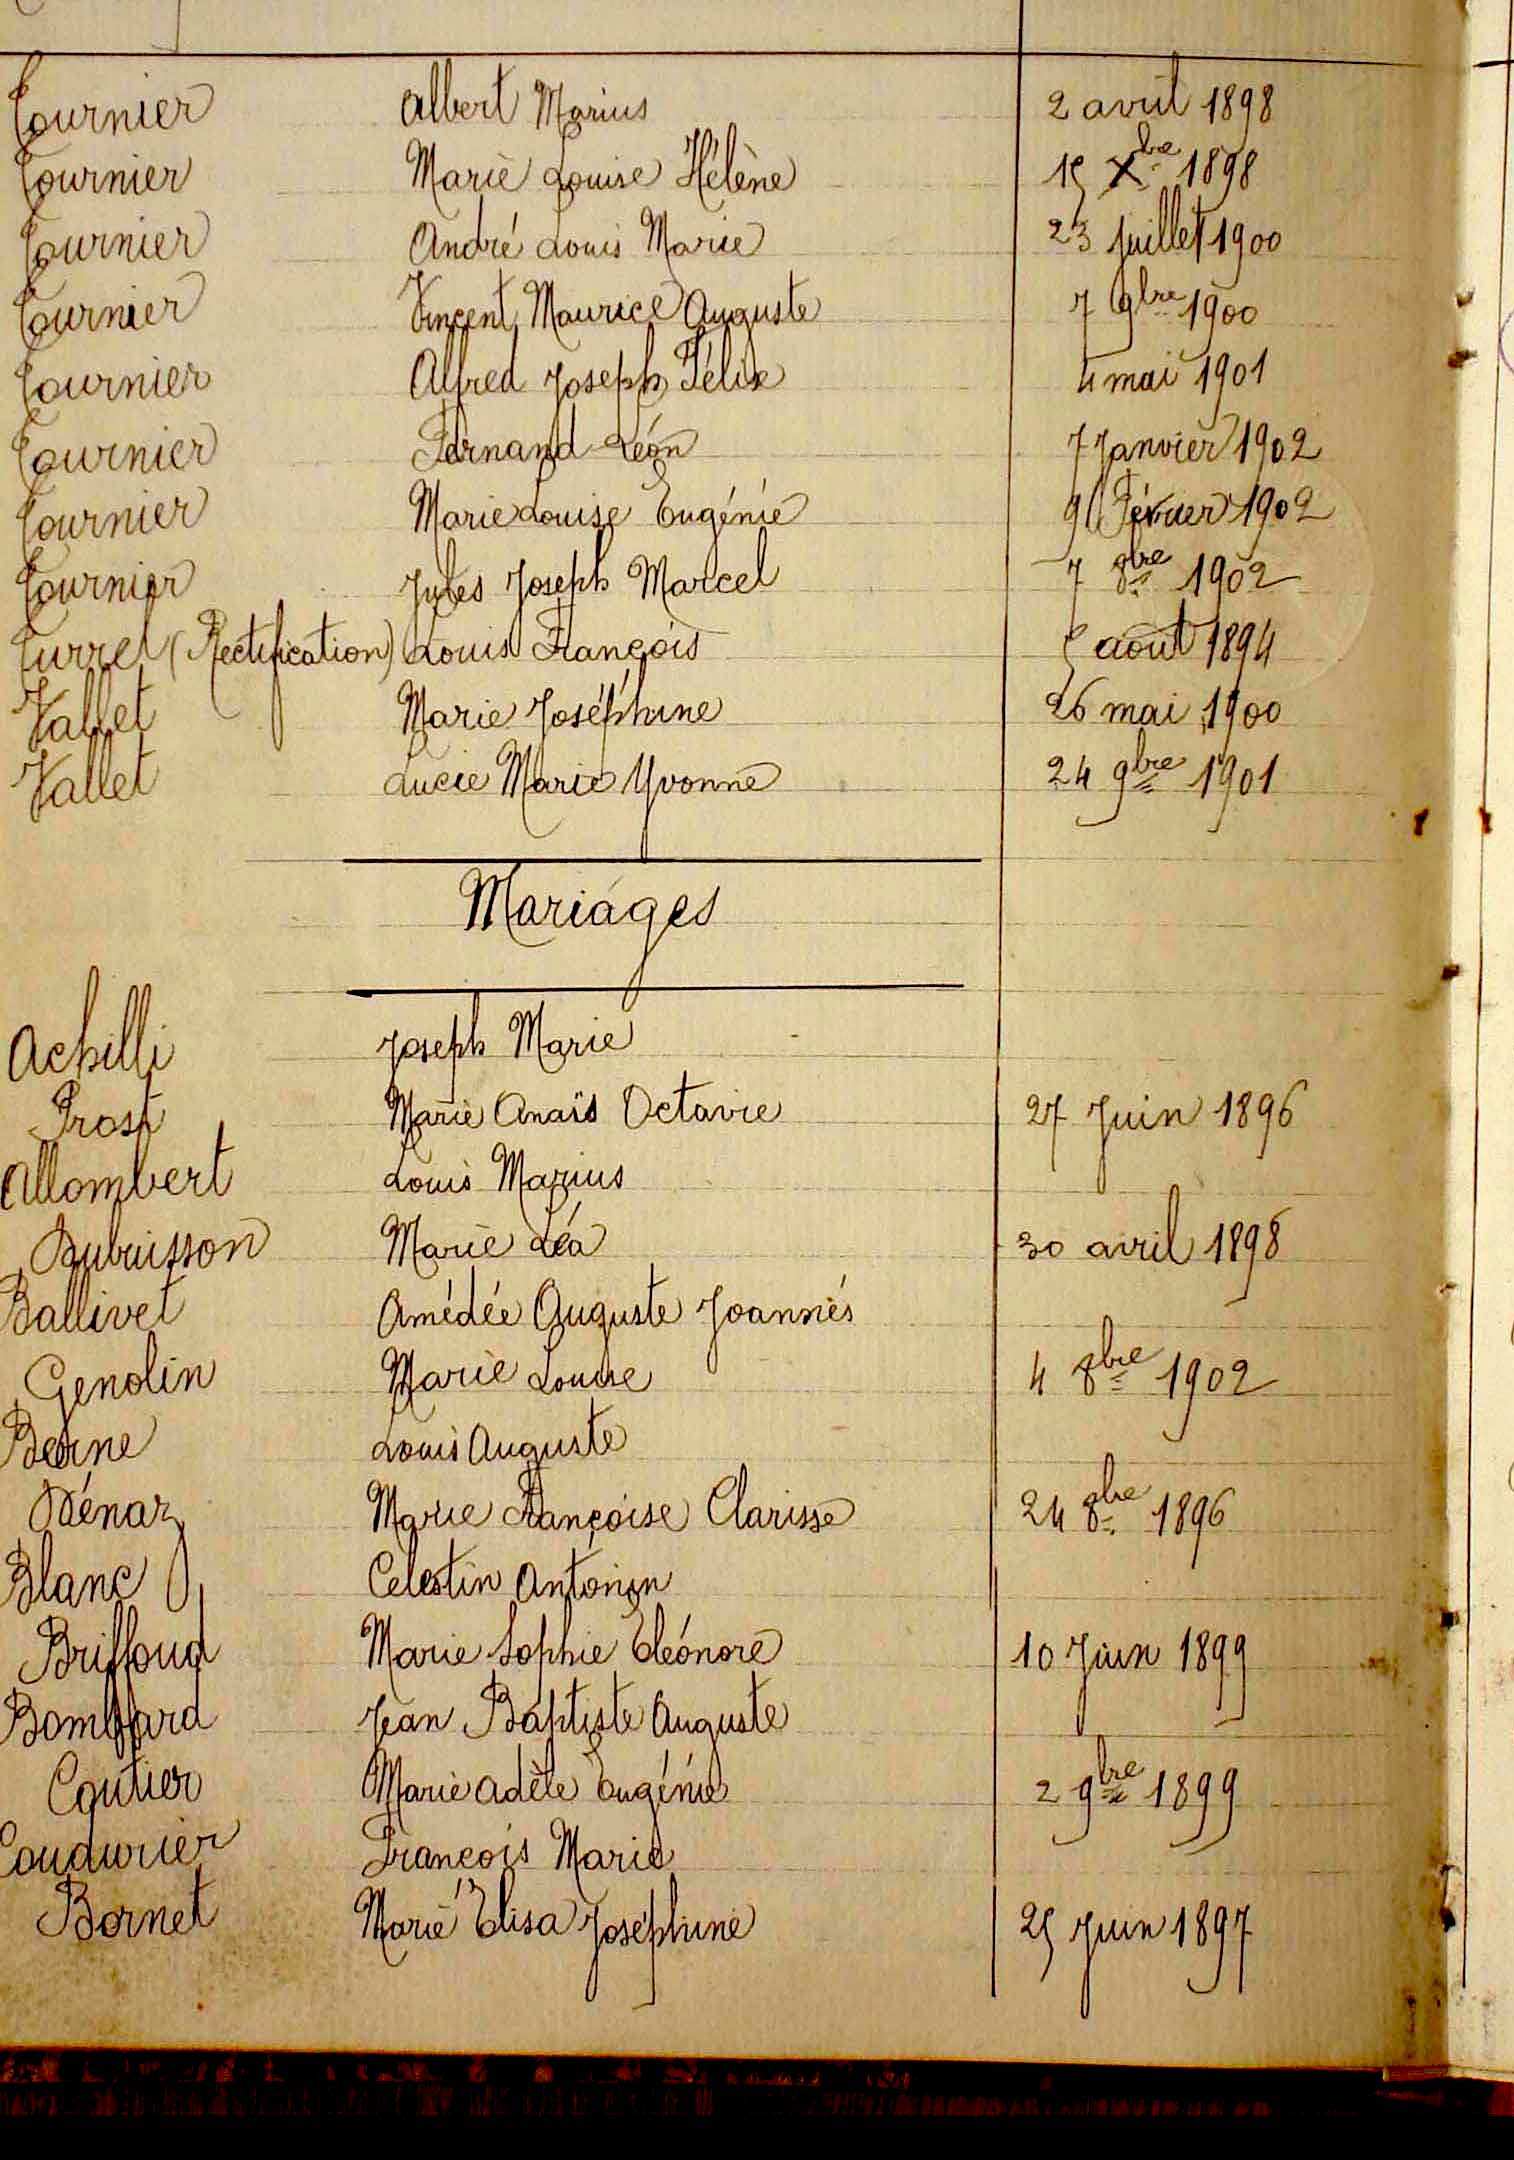 Tournier Albert Marius 2 avril 1898
Tournier Marie Louise Hélène 15 Xbre 1898
Tournier André Louis Marie 23 Juillet 1900
Tournier Vincent Maurice Auguste 7 9bre 1900
Tournier Alfred Joseph Félix 4 mai 1901
Tournier Fernand Léon 7 Janvier 1902
Tournier Marie Louise Eugénie 9 Février 1902
Tournier Jules Joseph Marcel 7 8bre 1902
Turrel (Rectification) Louis François 5 août 1894
Vallet Marie Joséphine 26 mai 1900
Vallet Lucie Marie Yvonne 24 9bre 1901
Mariages
Achilli Joseph Marie
Prost Marie Anaïs Octavie 27 Juin 1896
Allombert Louis Marius
Dubuisson Marie Léa 30 avril 1898
Ballivet Amédée Auguste Joannès
Genolin Marie Louise 4 8bre 1902
Berne Louis Auguste
Dénaz Marie Françoise Clarisse 24 8bre 1896
Blanc Celestin Antonin
Briffoud Marie Sophie Eléonore 10 Juin 1899
Bombard Jean Baptiste Auguste
Coutier Marie Adèle Eugénie 2 9bre 1899
Coudurier François Marie
Bornet Marie Elisa Joséphine 25 Juin 1897